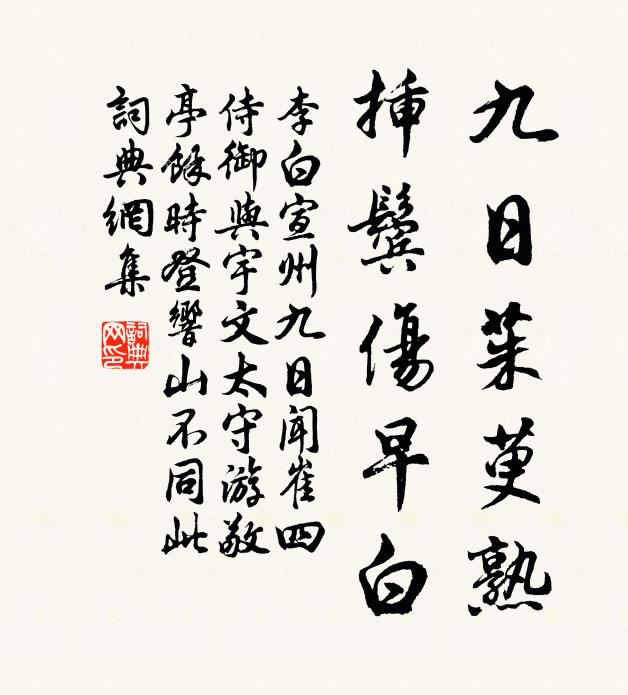 九日茱萸熟
插鬢傷早白
李白宣州九日聞崔四
侍御與宇文太守游敬
亭餘時登響山不同此
詞典網集
詞典
网印